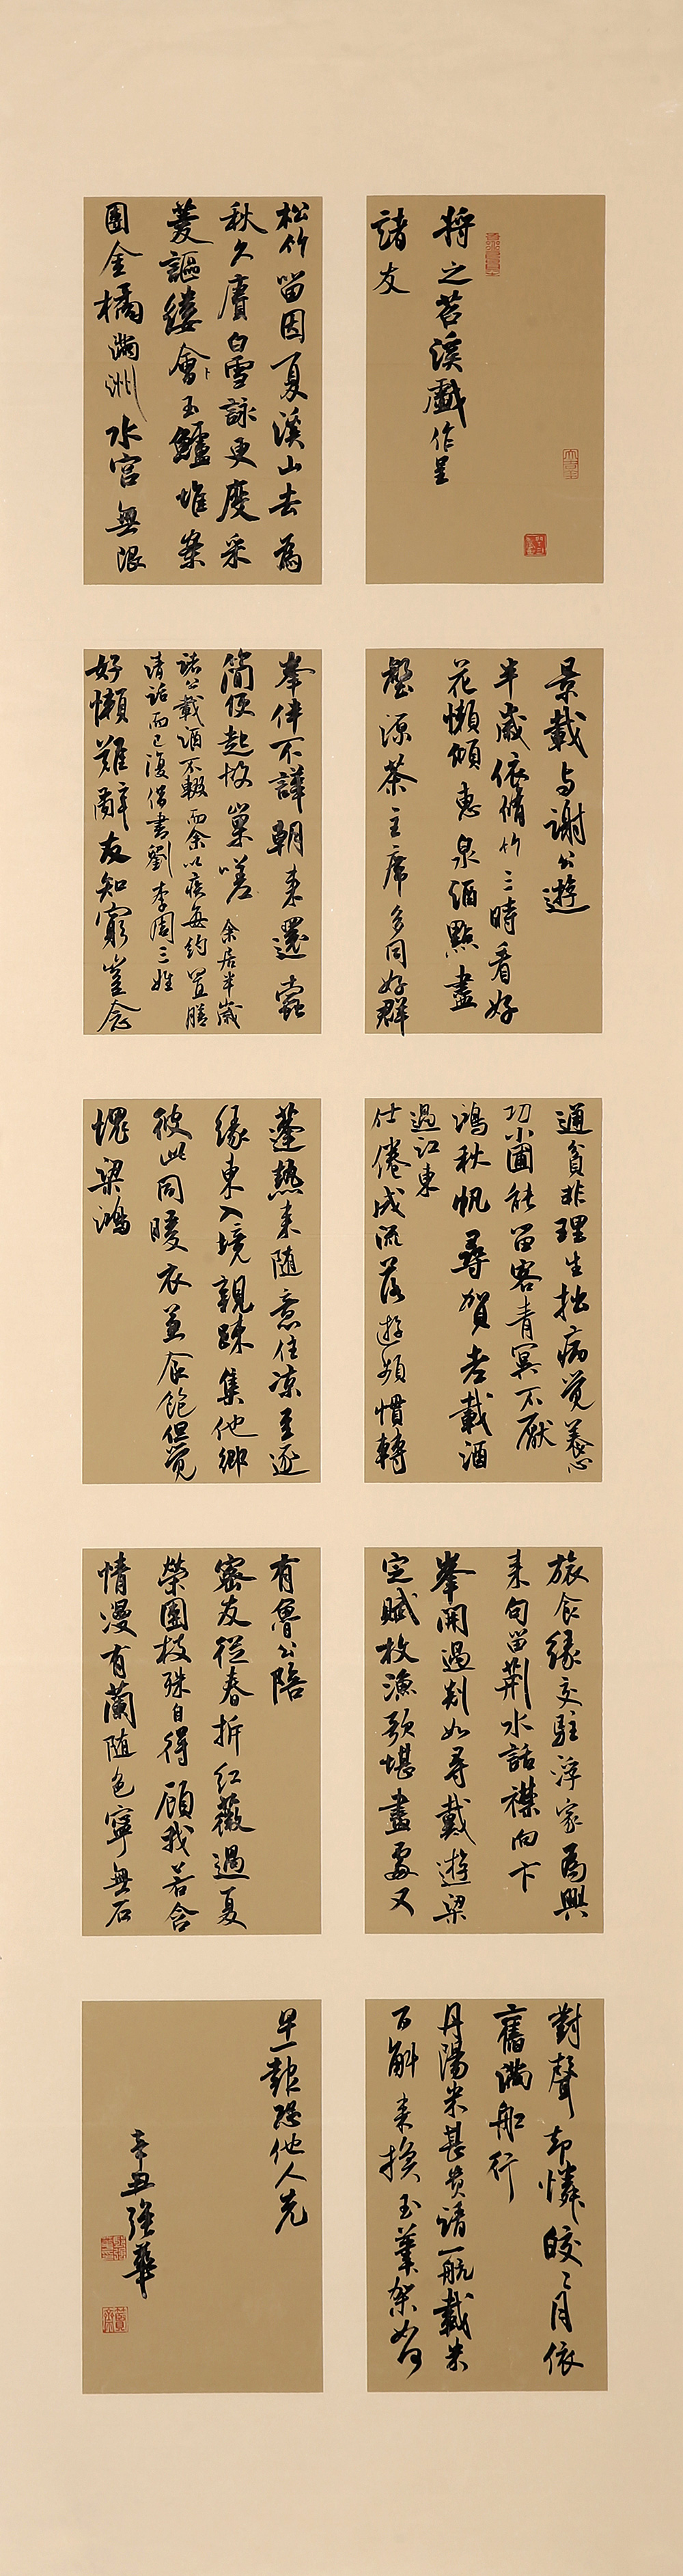 将之苕溪戲作呈
諸友
松竹留因夏溪山去為
秋久賡白雪詠更度采
菱謳縷會玉鱸堆案
團金橘滿洲水宫無限
景載与謝公遊
半歲依脩竹三時看好
花懶傾惠泉酒點盡
壑源茶主席多同好群
峯伴不譁朝来還蠹
簡便起故巢嗟 余居半歲
諸公載酒不輟而余以疾每約置膳
清話而已復借書劉李周三姓
好懶難辭友知窮豈念
通貧非理生拙病觉養心
功小圃能留客青冥不厭
鴻秋帆尋賀老載酒
過江東
仕倦成流落遊頻慣轉
蓬熱来随意住凉至逐
緣東入境親踈集他鄉
彼此同暖衣兼食飽但觉
愧梁鴻
旅食緣交駐浮家為興
来句留荆水話襟向卞
峯開過剡如尋戴遊梁
定賦枚漁歌堪畫處又
有魯公陪
密友從春拆紅薇過夏
榮團枝殊自得顧我若含
情漫有蘭随色寧無石
對聲却憐皎〻月依
舊滿舡行
丹陽米甚贵請一航載米
百斛来換玉筆架如何
早一報恐他人先
辛丑强華